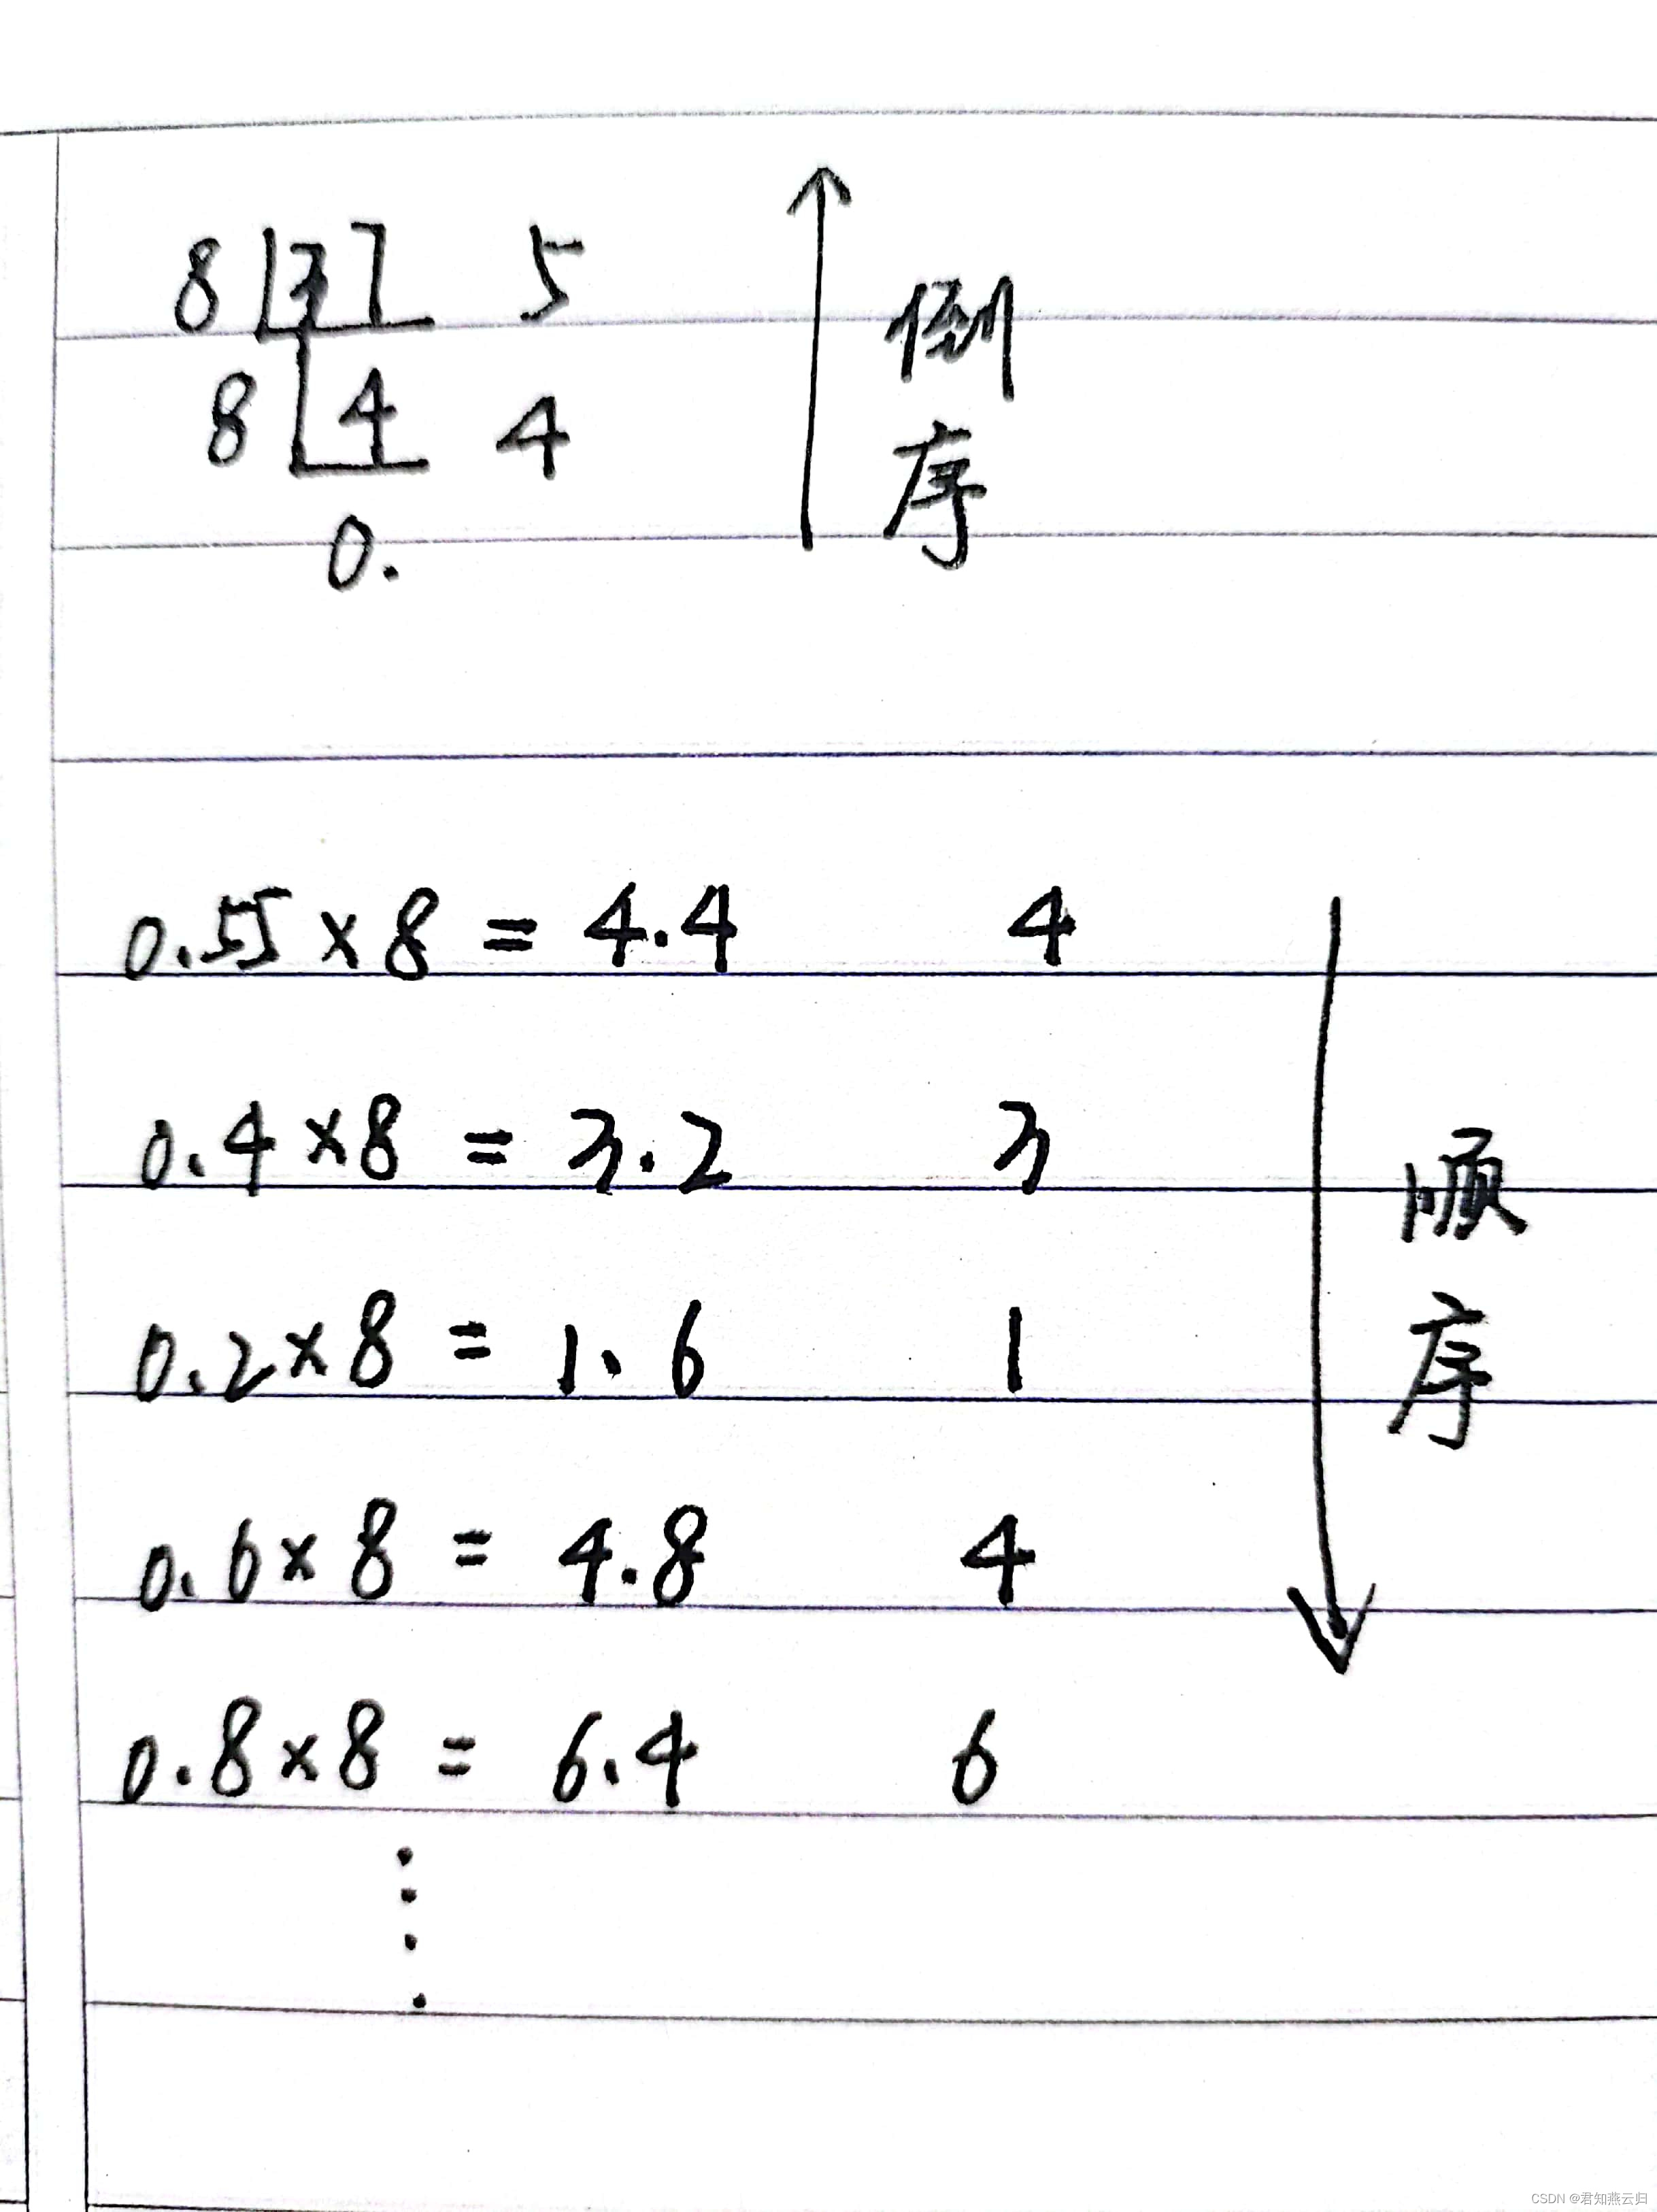 8 37 5
8 4 4
0.
倒序
0.55×8=4.4 4
0.4×8=3.2 3
0.2×8=1.6 1
0.6×8=4.8 4
0.8×8=6.4 6
顺序
CSDN @君知燕云归